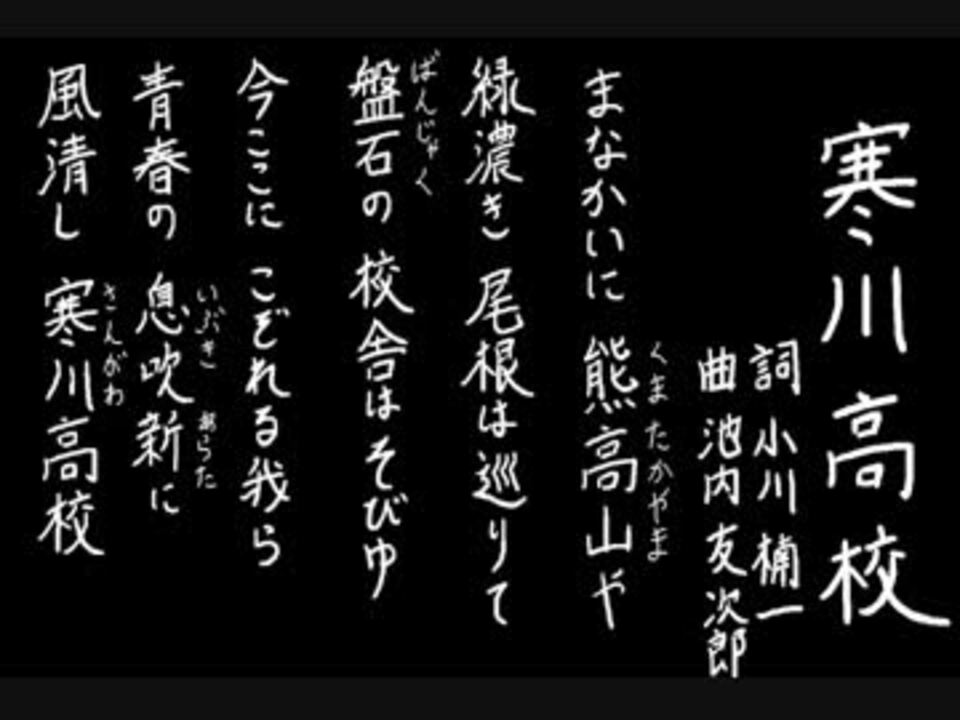 寒川高校
詞 小川 楠一
曲 池内 友次郎
まなかいに 熊高山や
くまたかやま
緑濃き 尾根は巡りて
盤石の 校舎はそびゆ
ばんじゃく
今ここに こぞれる我ら
青春の 息吹新に
いぶき あらた
風清し 寒川高校
さんがわ